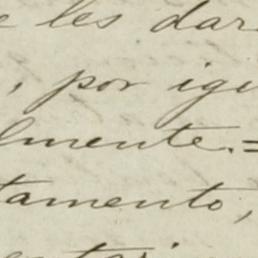 e les dar
, por igu
lmente.=
tamento,